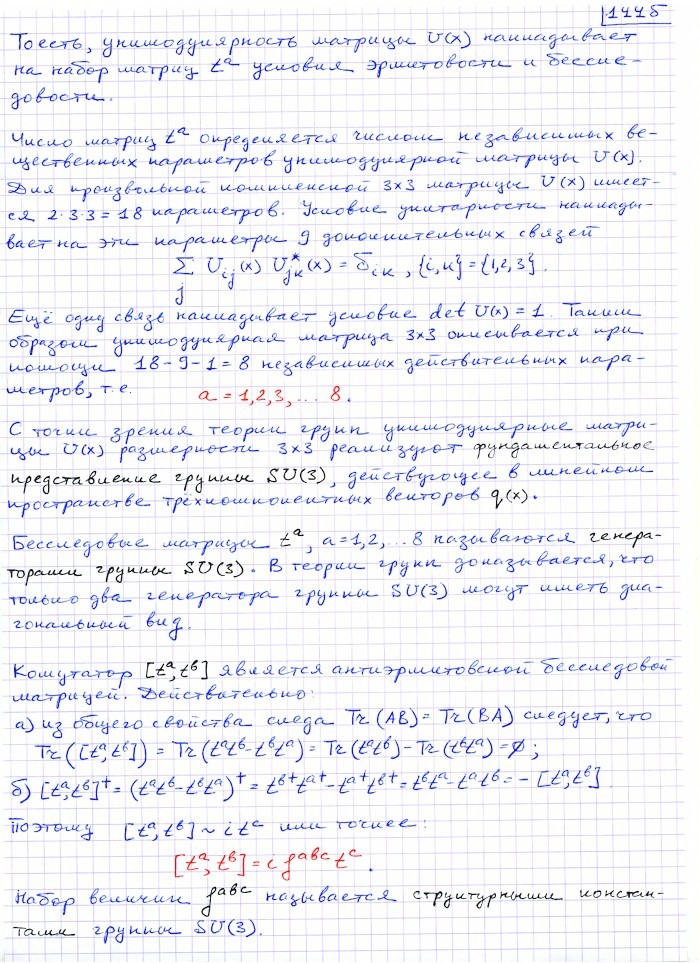 144б
То есть, унимодулярность матрицы U(x) накладывает
на набор матриц tᵃ условия эрмитовости и бессле-
довости.
Число матриц tᵃ определяется числом независимых ве-
щественных параметров унимодулярной матрицы U(x).
Для произвольной комплексной 3×3 матрицы U(x) имеет-
ся 2·3·3=18 параметров. Условие унитарности наклады-
вает на эти параметры 9 дополнительных связей
∑_j U_{ij}(x) U*_{jk}(x) = δ_{ik}, {i,k}={1,2,3}.
Ещё одну связь накладывает условие det U(x)=1. Таким
образом унимодулярная матрица 3×3 описывается при
помощи 18-9-1=8 независимых действительных пара-
метров, т.е. a=1,2,3,... 8.
С точки зрения теории групп унимодулярные матри-
цы U(x) размерности 3×3 реализуют фундаментальное
представление группы SU(3), действующее в линейном
пространстве трёхкомпонентных векторов q(x).
Бесследовые матрицы tᵃ, a=1,2,...8 называются генера-
торами группы SU(3). В теории групп доказывается, что
только два генератора группы SU(3) могут иметь диа-
гональный вид.
Комутатор [tᵃ,tᵇ] является антиэрмитовской бесследовой
матрицей. Действительно:
а) из общего свойства следа Tr(AB)=Tr(BA) следует, что
Tr([tᵃ,tᵇ]) = Tr(tᵃtᵇ-tᵇtᵃ) = Tr(tᵃtᵇ)-Tr(tᵇtᵃ)=∅;
б) [tᵃ,tᵇ]⁺=(tᵃtᵇ-tᵇtᵃ)⁺=tᵇ⁺tᵃ⁺-tᵃ⁺tᵇ⁺=tᵇtᵃ-tᵃtᵇ=-[tᵃ,tᵇ].
Поэтому [tᵃ,tᵇ]~itᶜ или точнее:
[tᵃ,tᵇ]=i fᵃᵇᶜ tᶜ.
Набор величин fᵃᵇᶜ называется структурными констан-
тами группы SU(3).